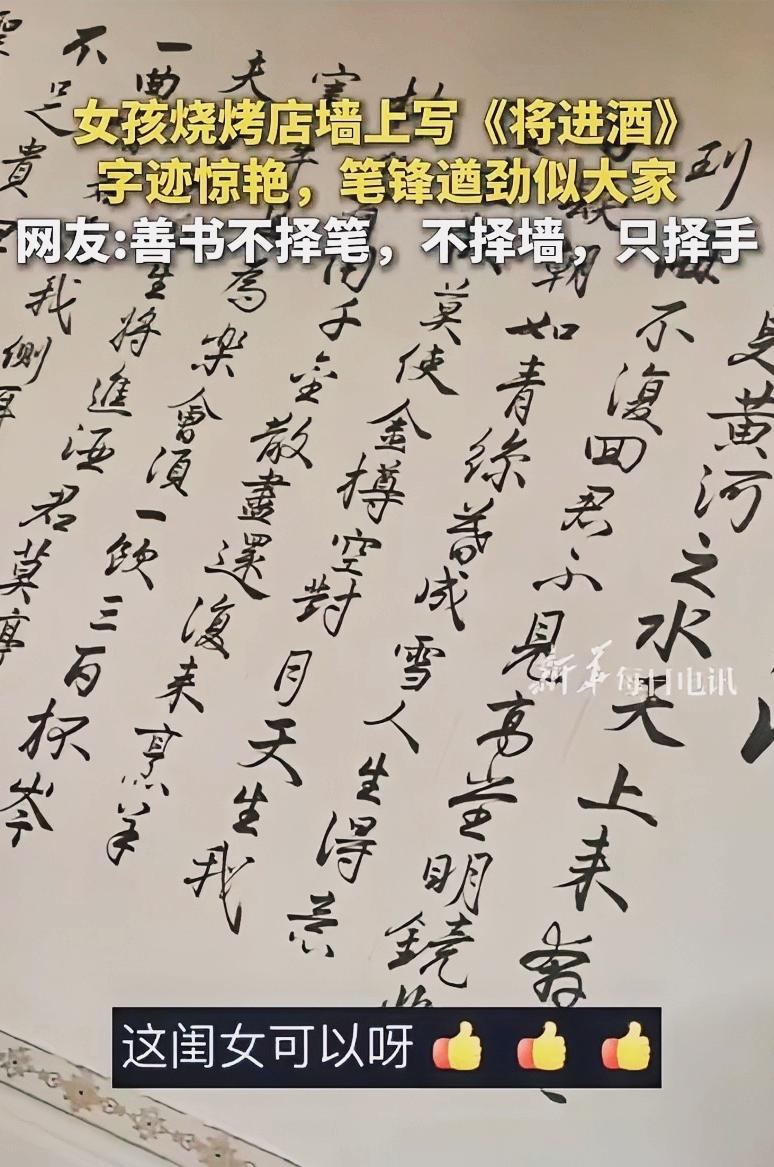 女孩烧烤店墙上写《将进酒》
字迹惊艳，笔锋遒劲似大家
网友:善书不择笔，不择墙，只择手
見黃河之水天上来奔
到海不復回君不見高堂明鏡
朝如青絲暮成雪人生得意
莫使金樽空對月天生我
用千金散盡還復来烹羊
為樂會須一飲三百杯岑
夫生將進酒君莫停
一曲我側耳
不足貴
新华每日电讯
这闺女可以呀👍👍👍